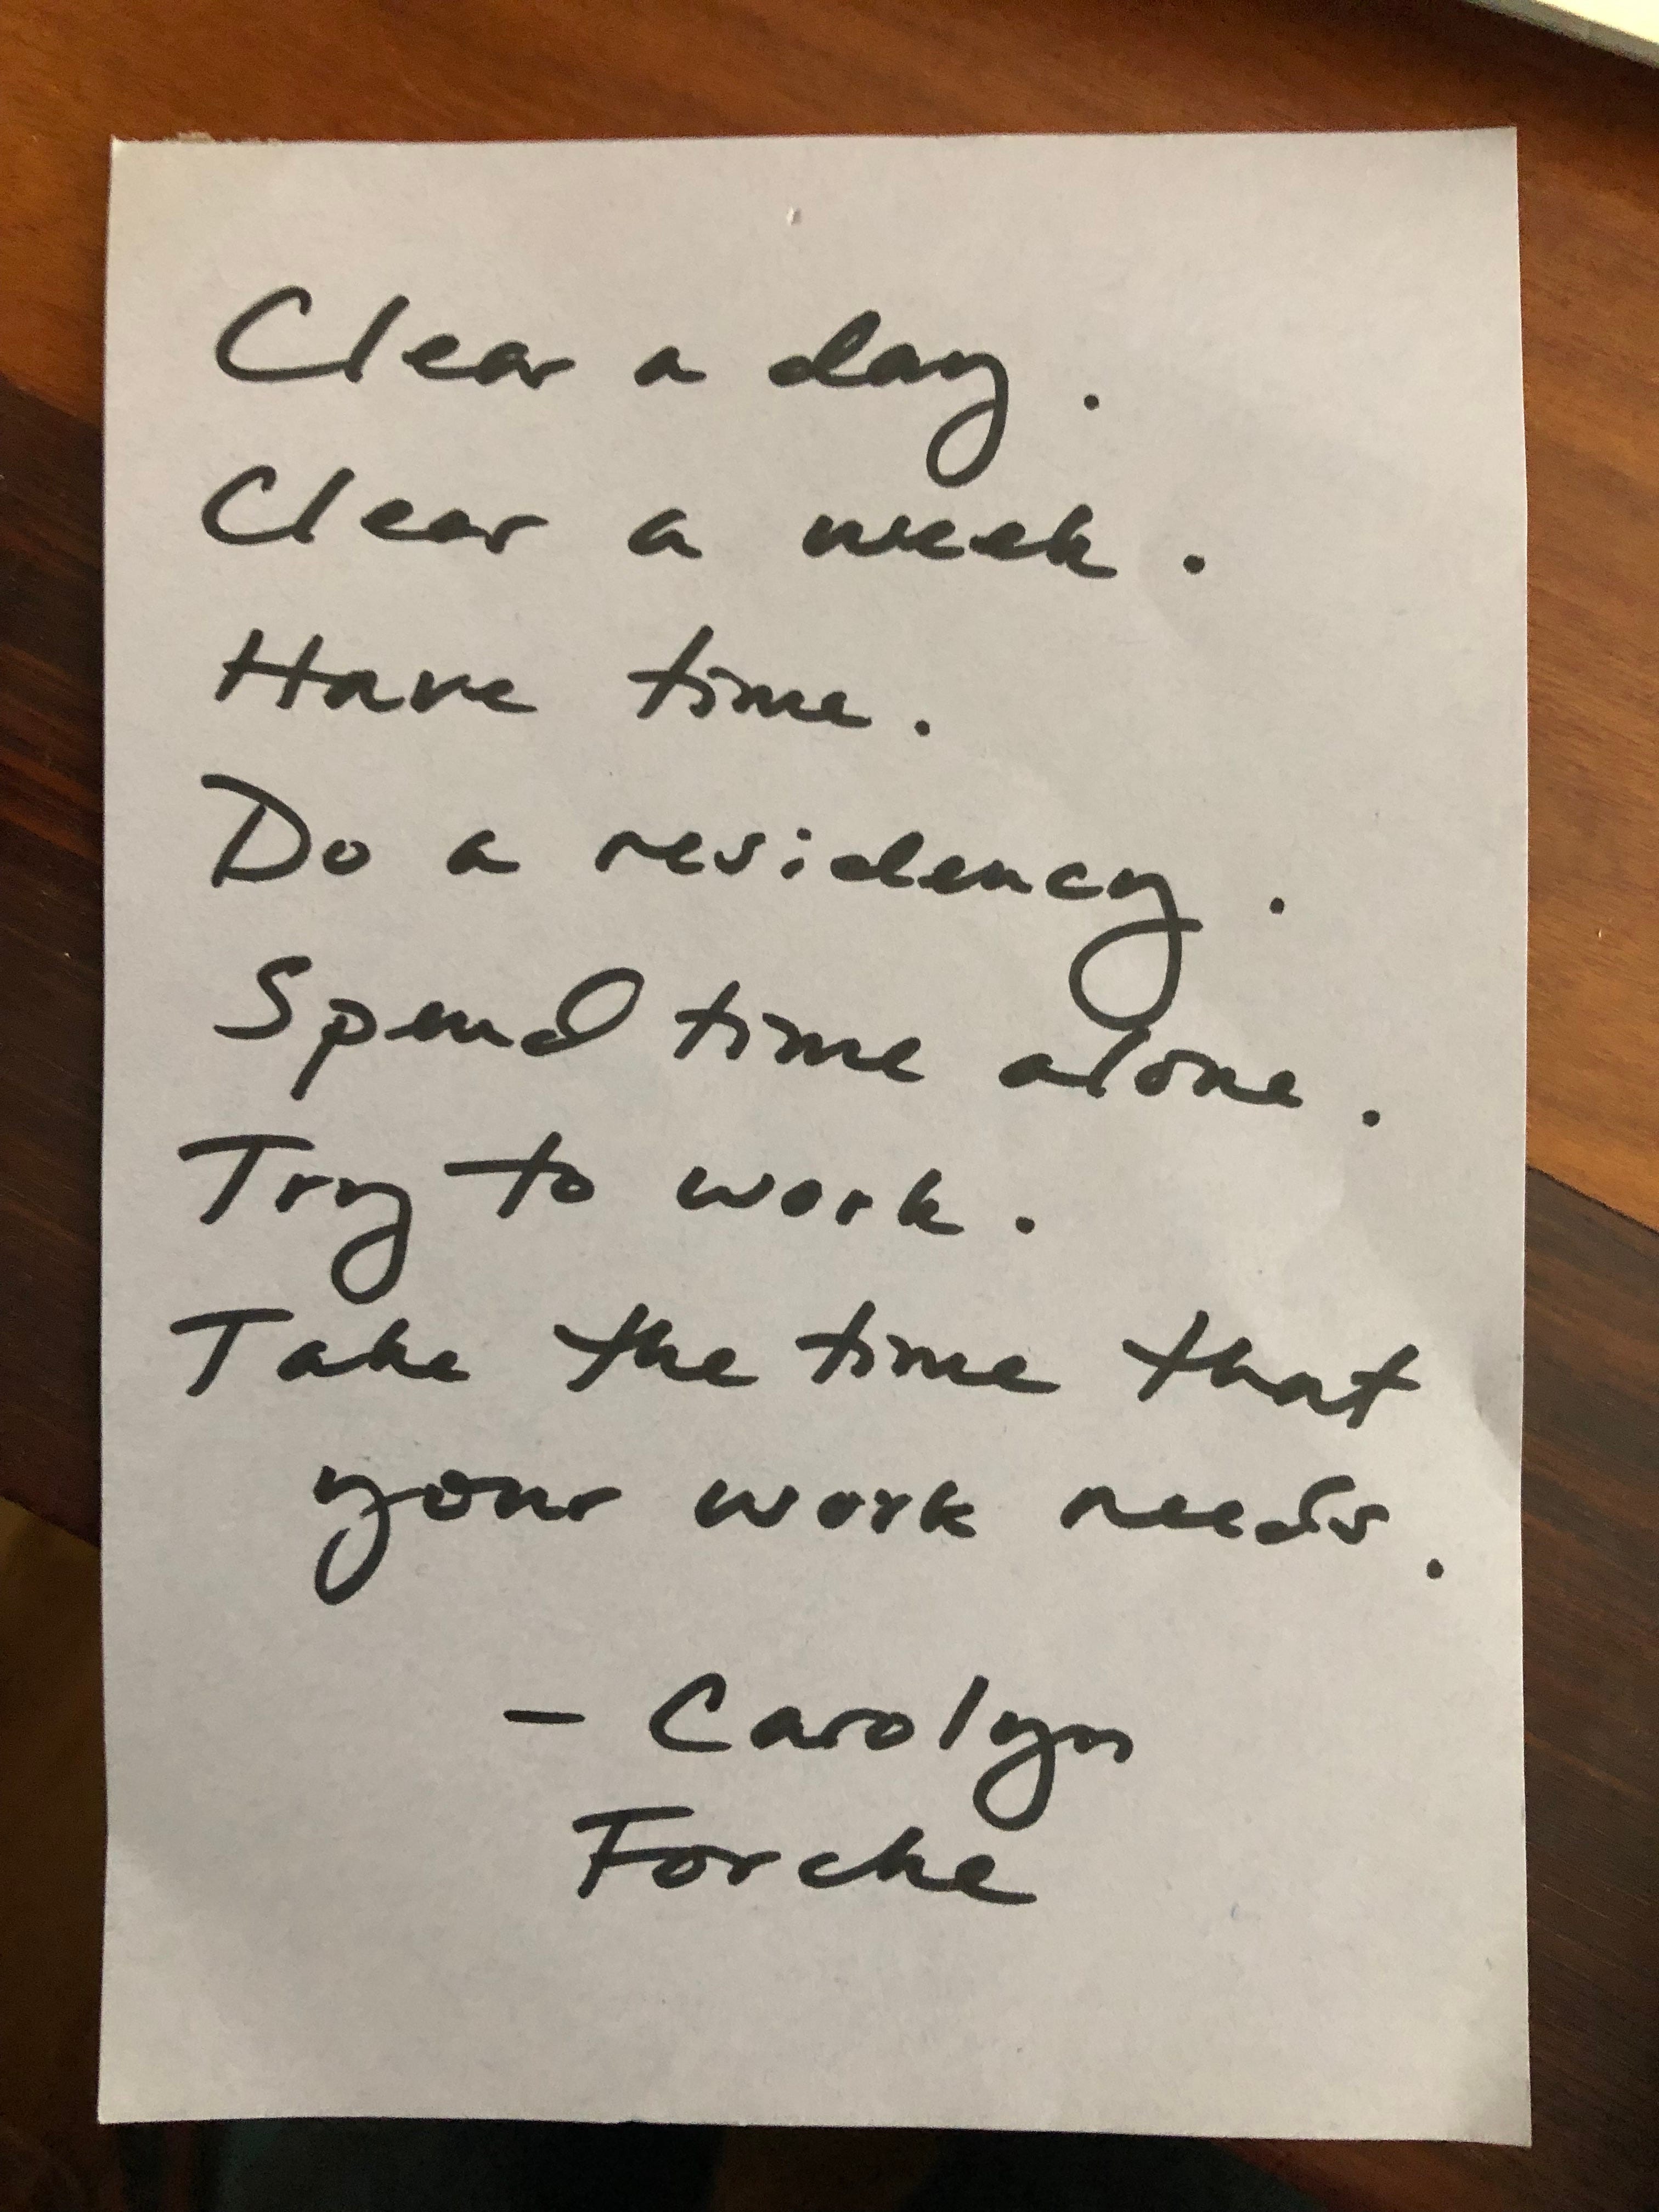 Clear a day.
Clear a week.
Have time.
Do a residency.
Spend time alone.
Try to work.
Take the time that
your work needs.
- Carolyn
Forche